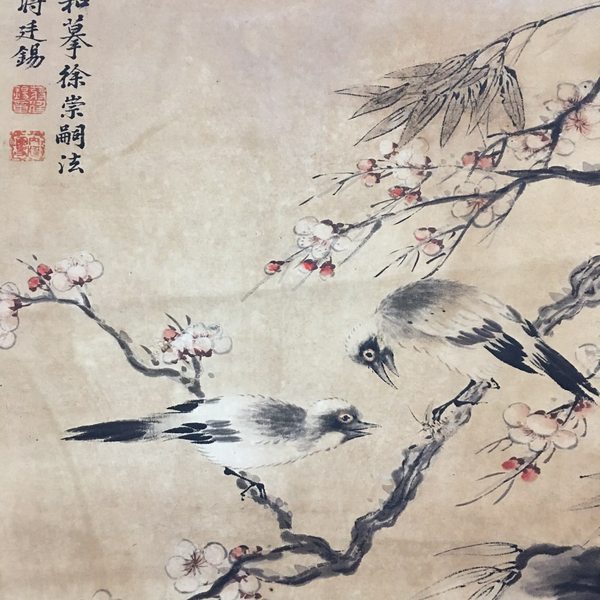 和摹徐崇嗣法
蔣廷錫